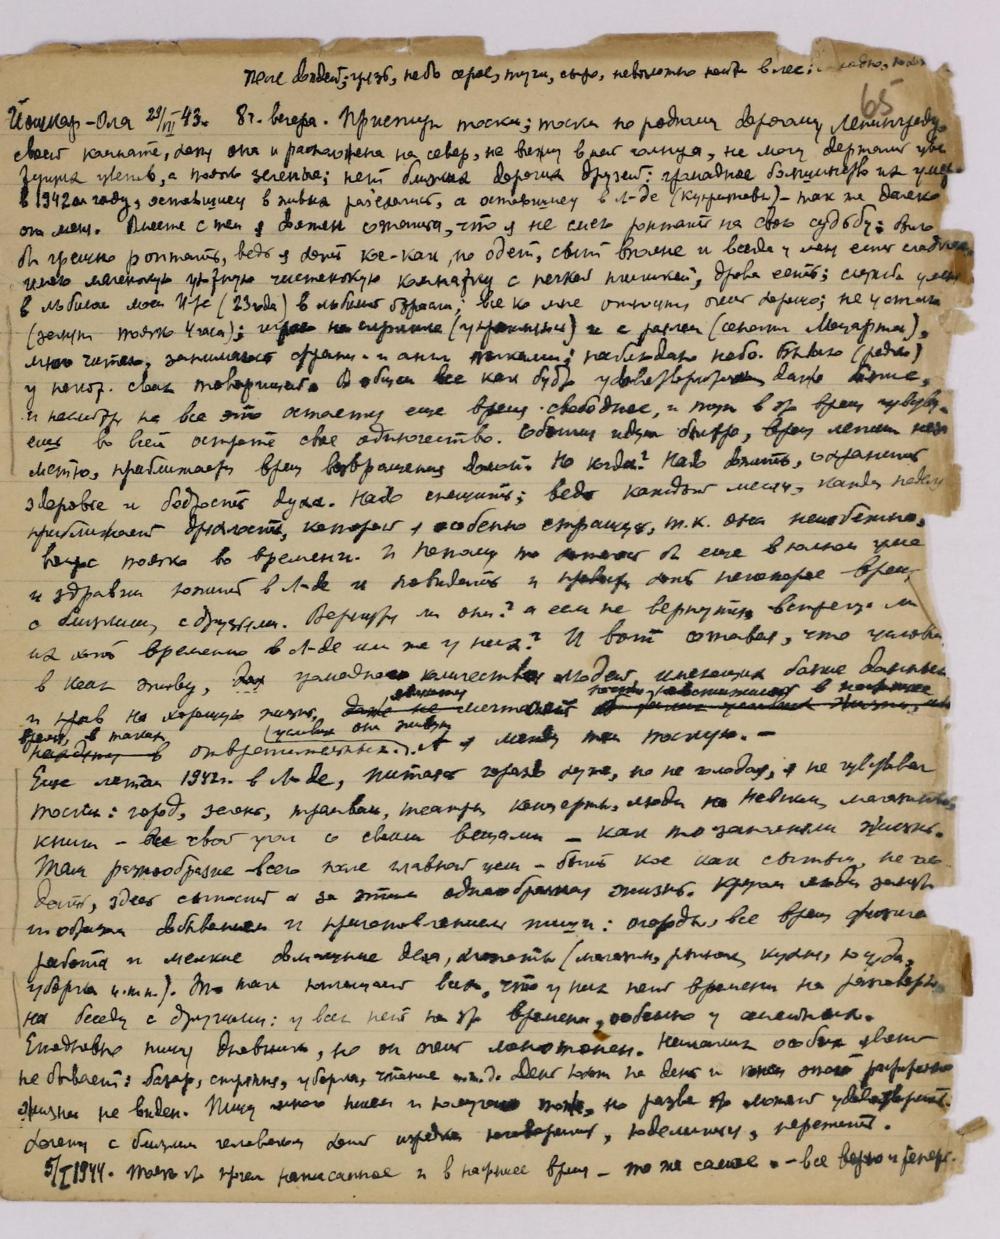 После дождей; грязь, небо серое, тучи, сыро, невозможно пойти в лес;
65
Йошкар-Ола 29/VII 43. 8 г. вечера. Приступ тоски; тоска по родному дорогому Ленинграду,
своей комнате, хотя она и расположена на север, не вижу в ней солнца, не могу держать цве-
тущих цветов, а только зеленые; нет близких дорогих друзей: громадное большинство их умер.
в 1942 ом году, оставшиеся в живых разъехались, а оставшиеся в Л-де (Купритовы) – так же далеко
от меня. Вместе с тем я должен сознаться, что я не смею роптать на свою судьбу; было
бы грешно роптать, ведь я хоть кое-как, но одет, сыт вполне и всегда у меня есть сладкое,
имею маленькую уютную чистенькую комнатку с печкой плиткой; дрова есть; служба у меня
в любимом моем И-те (23 года) в любимой; все ко мне относятся очень хорошо; не устаю
(занят только 4 часа); играю на скрипке и с роялем (сонаты Моцарта),
много читаю, занимаюсь франц. и англ. языками; наблюдаю небо. Бываю (редко)
у некот. своих товарищей. В общем все как будто удовлетворительно, даже более,
и несмотря на все это остается еще время свободное, и тут в это время чувству-
ешь во всей остроте свое одиночество. События идут быстро, время летит неза-
метно, приближает время возвращения домой. Но когда? Надо дожить, сохранить
здоровье и бодрость духа. Надо спешить; ведь каждый месяц, каждая неделя
приближает дряхлость, которой я особенно страшусь, т.к. она неизбежна,
вопрос только во времени. И потому то хочется бы еще в полном уме
и здравии пожить в Л-де и повидать и провести хоть некоторое время
с близкими, с друзьями. Вернутся ли они? а если не вернутся, встречу ли
их хоть временно в Л-де или же у них? И вот сознавая, что условия
в каких живу, для громадного количества людей, имеющих более данных
и прав на хорошую жизнь, мечта
время, в таких (условия они живут
в отвратительных). А я между тем тоскую. –
Еще летом 1942 г. в Л-де, питаясь гораздо хуже, но не голодая, я не чувствовал
тоски: город, зелень, трамваи, театры, концерты, люди на Невском, магазины,
книги – свой угол со своими вещами – как то заполняли жизнь.
Там разнообразие всего после главной цели – быть кое как сытым, не го-
лодать, здесь сытость а за этим однообразная жизнь. Кругом люди заняты
главным образом добыванием и приготовлением пищи: огороды, все время физич.
работа и мелкие домашние дела, хлопоты (магазин, рынок, кухня, посуда,
уборка и т.п.). Это так поглощает всех, что у них нет времени на разговоры,
на беседу с другими: у всех нет на это времени, особенно у семейных.
Ежедневно пишу дневник, но он очень монотонен. Никаких особых явлений
не бывает: базар, стряпня, уборка, чтение и т.д. День похож на день и конец этого
жизни не виден. Пишу много писем и получаю тоже, но разве это может удовлетворить.
Хочется с близким человеком хоть изредка поговорить, поделиться, пережить.
5/I 1944. Только что прочел написанное и в настоящее время – то же самое. – все верно и теперь.